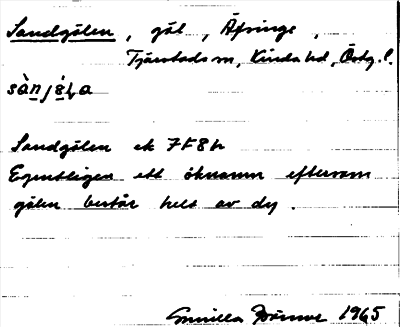 Sandgölen, göl, Äpinge,
Tjärstads sn, Kinda hd, Östg. l.
Sandgölen ek 7F8h
Egentligen ett öknamn eftersom
gölen består helt av dy.
Gunilla 1965